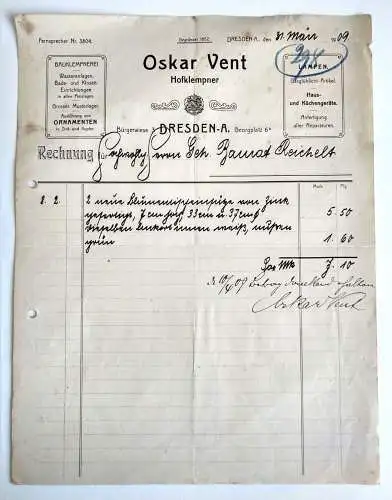 Fernsprecher Nr. 3804.
Gegründet 1852.
DRESDEN-A. den 31. März 1909
Oskar Vent
Hofklempner
BAUKLEMPNEREI
Wasseranlagen,
Bade- und Klosett-
Einrichtungen
in allen Preislagen.
Grosses Musterlager.
Ausführung von
ORNAMENTEN
in Zink und Kupfer.
LAMPEN,
Gasglühlicht-Artikel.
Haus-
und Küchengeräte.
Anfertigung
aller Reparaturen.
Bürgerwiese DRESDEN-A. Georgplatz
Rechnung für Herrn Geh. Baurat Reichelt
Mark Pfg
2 neue von Zink
gefertigt, 7 cm hoch 33 cm u 37 cm
5.50
dieselben innen weiß, außen
grün
1.60
Mk 7.10
Betrag dankend erhalten
Oskar Vent